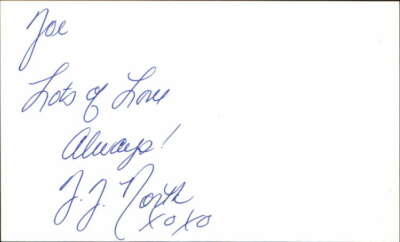 Joe
Lots of Love
Always!
J.J. North
xoxo